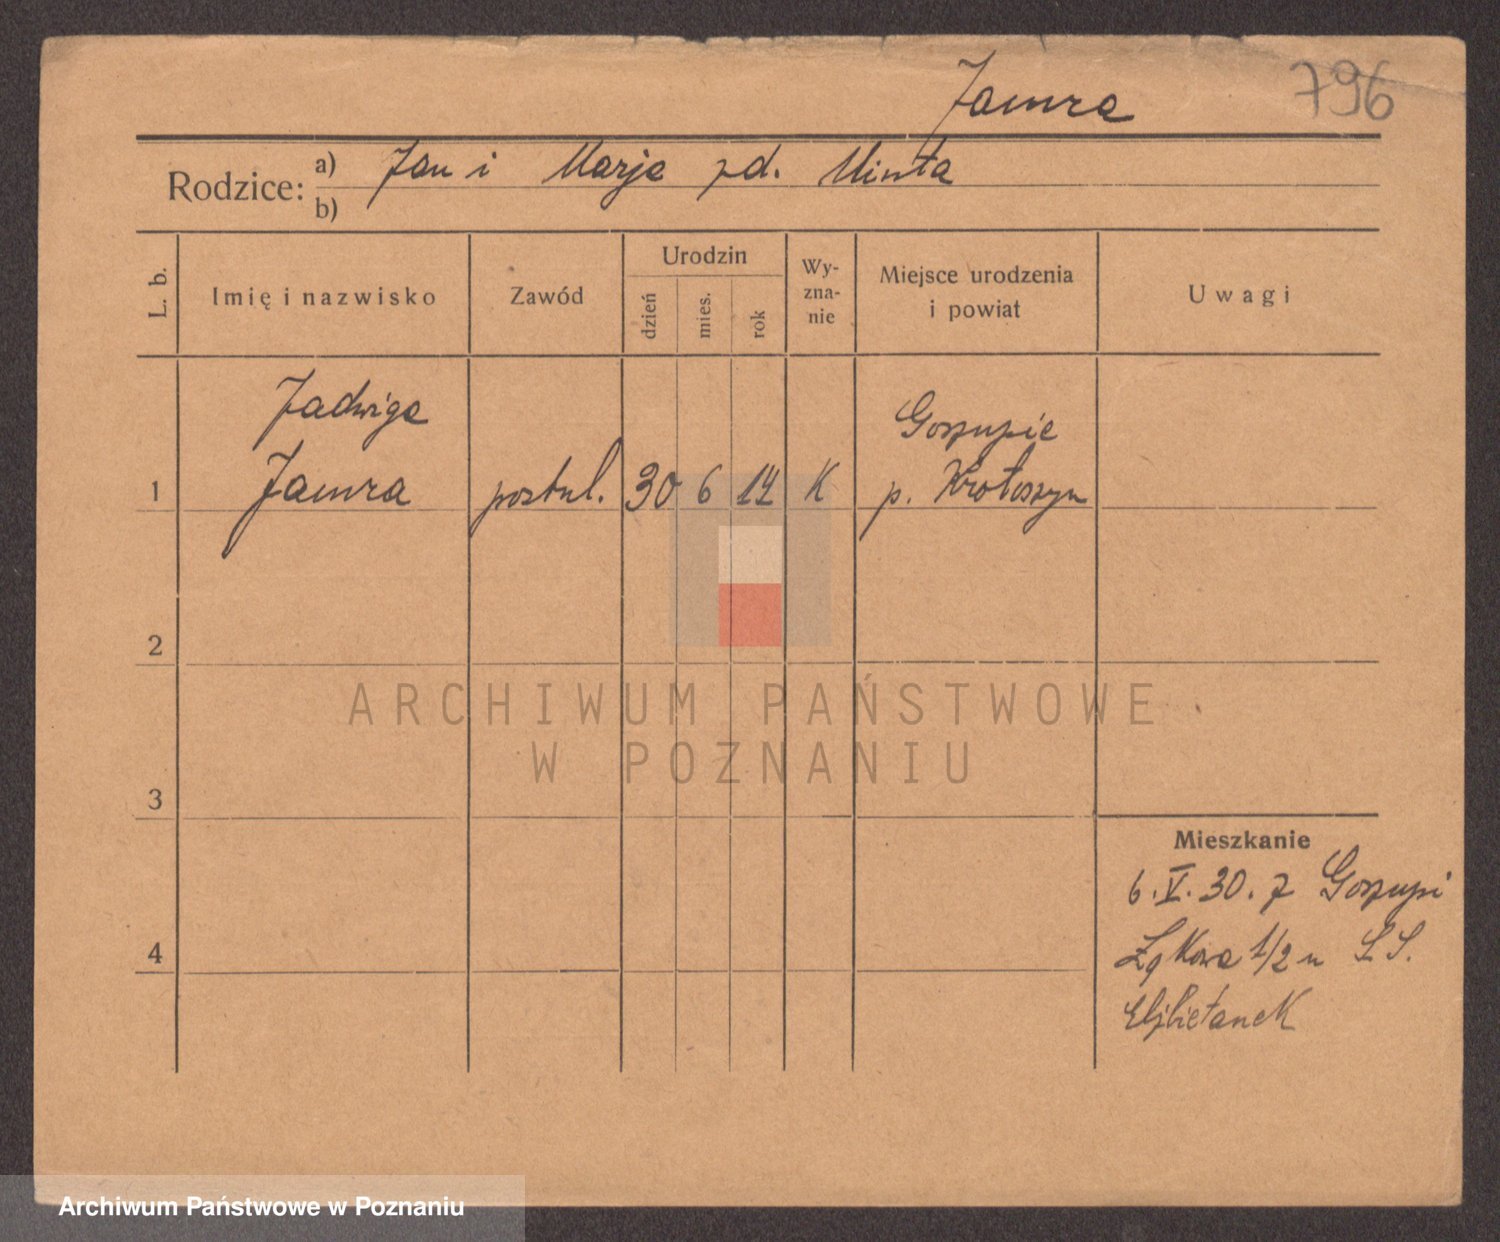 Jamra
796
Rodzice:
a) Jan i Marja zd. Minta
b)
L. b.
Imię i nazwisko
Zawód
Urodzin
dzień
mies.
rok
Wy-
zna-
nie
Miejsce urodzenia
i powiat
Uwagi
Jadwiga
Goszupie
1 Jamra postul. 30 6 14 K p. Krotoszyn
2
ARCHIWUM PAŃSTWOWE
W POZNANIU
3
Mieszkanie
6.V.30. z
4
Łąkowa 1/2 u S S.
Elżbietanek
Archiwum Państwowe w Poznaniu